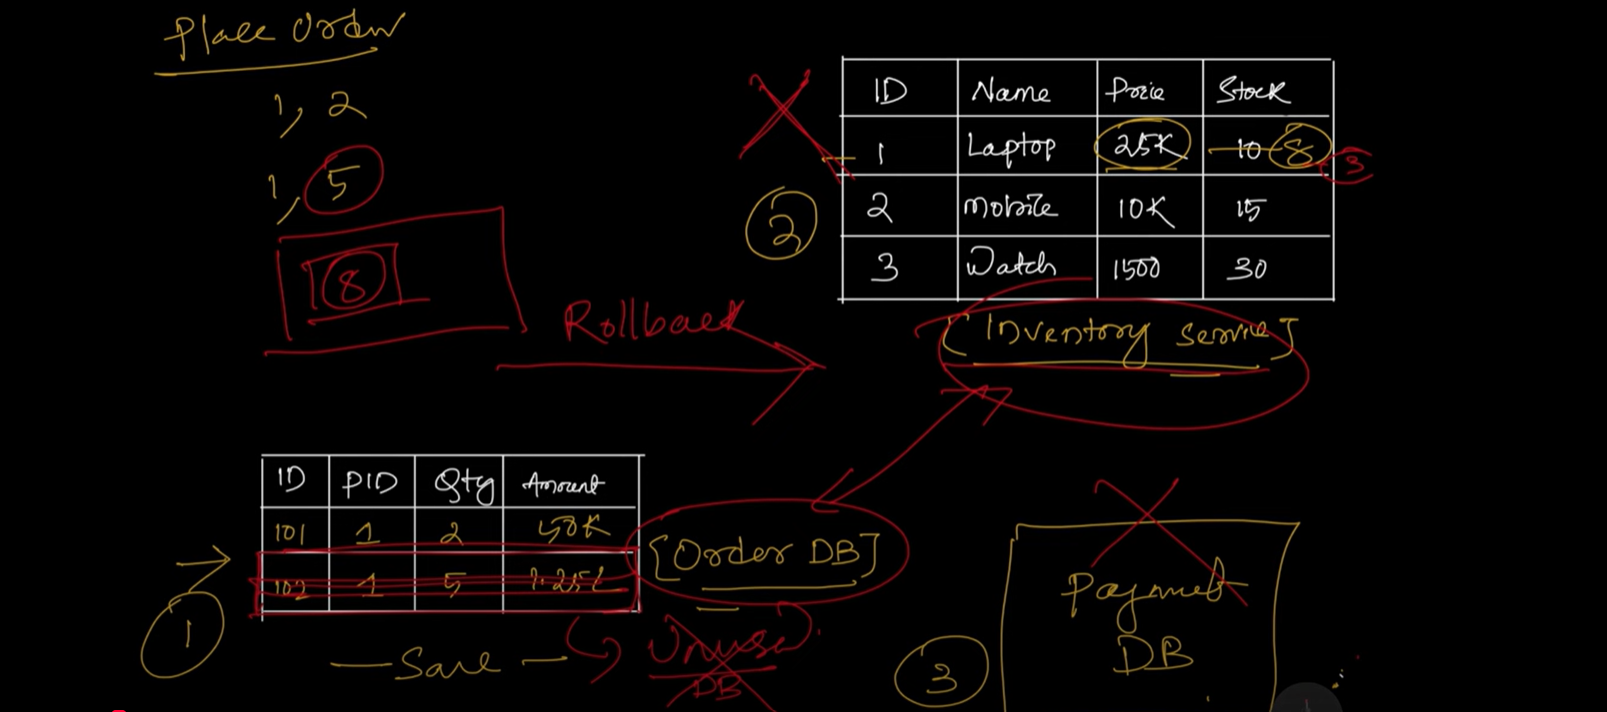 Place Order
1, 2
1, 5
8
Rollback
ID Name Price Stock
1 Laptop 25K 10 8 3
2 Mobile 10K 15
3 Watch 1500 30
2
[Inventory Service]
ID PID Qty Amount
101 1 2 50K
102 1 5 1.25L
[Order DB]
1
Save
Unused
DB
3
Payment
DB